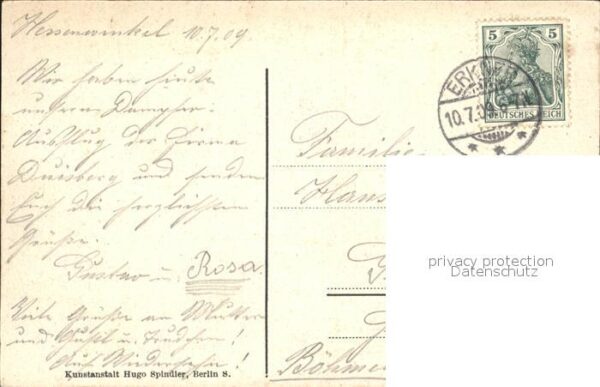 Hessenwinkel 10.7.09
Wir haben heute
unseren Dampfer-
Ausflug der Firma
Duisberg und senden
Euch die herzlichsten
Grüße.
Gustav u. Rosa.
Viele Grüße an Mutter
und Gustl u. Trudchen!
Auf Wiedersehn!
Kunstanstalt Hugo Spindler, Berlin S.
5 5
DEUTSCHES REICH
ERKNER
10.7.09
Familie
Hans
Böhme
privacy protection
Datenschutz